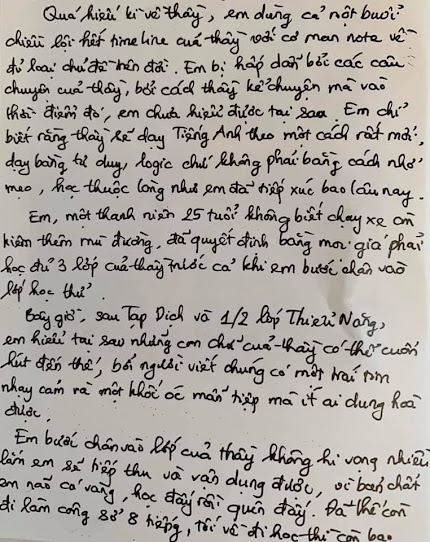 Quá hiếu kì về thầy, em dùng cả một buổi
chiều lội hết timeline của thầy với cơ man note về
đủ loại chủ đề trên đời. Em bị hấp dẫn bởi các câu
chuyện của thầy, bởi cách thầy kể chuyện mà vào
thời điểm đó, em chưa hiểu được tại sao. Em chỉ
biết rằng thầy sẽ dạy Tiếng Anh theo một cách rất mới,
dạy bằng tư duy, logic chứ không phải bằng cách nhớ
mẹo, học thuộc lòng như em đã tiếp xúc bao lâu nay.
Em, một thanh niên 25 tuổi không biết chạy xe còn
kiêm thêm mù đường, đã quyết định bằng mọi giá phải
học đủ 3 lớp của thầy trước cả khi em bước chân vào
lớp học thử.
Bây giờ, sau Tạp Dịch và 1/2 lớp Thiểu Năng,
em hiểu tại sao những con chữ của thầy có thể cuốn
hút đến thế, bởi người viết chúng có một trái tim
nhạy cảm và một khối óc mẫn tiệp mà ít ai dung hoà
được.
Em bước chân vào lớp của thầy không hi vọng nhiều
lắm em sẽ tiếp thu và vận dụng được, vì bản chất
em não cá vàng, học đấy rồi quên đấy. Đã thế còn
đi làm công sở 8 tiếng, tối về đi học thì còn bao